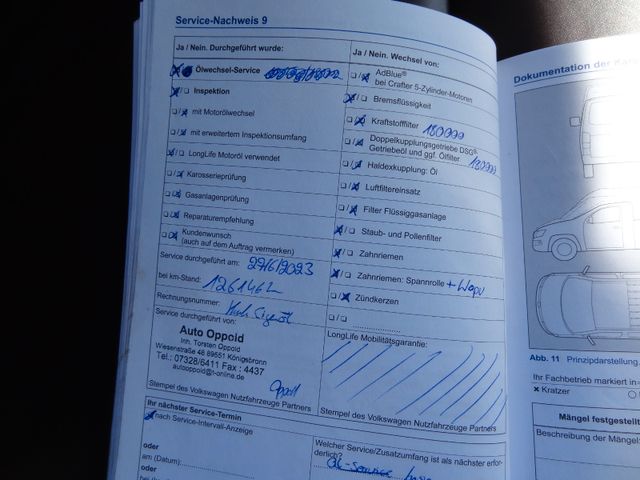 Service-Nachweis 9
Ja / Nein. Durchgeführt wurde:
Ölwechsel-Service
Inspektion
mit Motorölwechsel
mit erweitertem Inspektionsumfang
LongLife Motoröl verwendet
Karosserieprüfung
Gasanlagenprüfung
Reparaturempfehlung
Kundenwunsch
(auch auf dem Auftrag vermerken)
Service durchgeführt am: 27/6/2023
bei km-Stand: 126146
Rechnungsnummer:
Service durchgeführt von:
Auto Oppold
Inh. Torsten Oppold
Wiesenstraße 46 89551 Königsbronn
Tel.: 07328/6411 Fax : 4437
autooppold@t-online.de
Stempel des Volkswagen Nutzfahrzeuge Partners
Ja / Nein. Wechsel von:
AdBlue®
bei Crafter 5-Zylinder-Motoren
Bremsflüssigkeit
Kraftstofffilter 180000
Doppelkupplungsgetriebe DSG®:
Getriebeöl und ggf. Ölfilter 180000
Haldexkupplung: Öl
Luftfiltereinsatz
Filter Flüssiggasanlage
Staub- und Pollenfilter
Zahnriemen
Zahnriemen: Spannrolle + Wapu
Zündkerzen
LongLife Mobilitätsgarantie:
Stempel des Volkswagen Nutzfahrzeuge Partners
Ihr nächster Service-Termin
nach Service-Intervall-Anzeige
oder
am (Datum):
oder
Welcher Service/Zusatzumfang ist als nächster erfor-
derlich?
Dokumentation der
Abb. 11 Prinzipdarstellung.
Ihr Fachbetrieb markiert in
× Kratzer
Mängel festgestellt
Beschreibung der Mängel